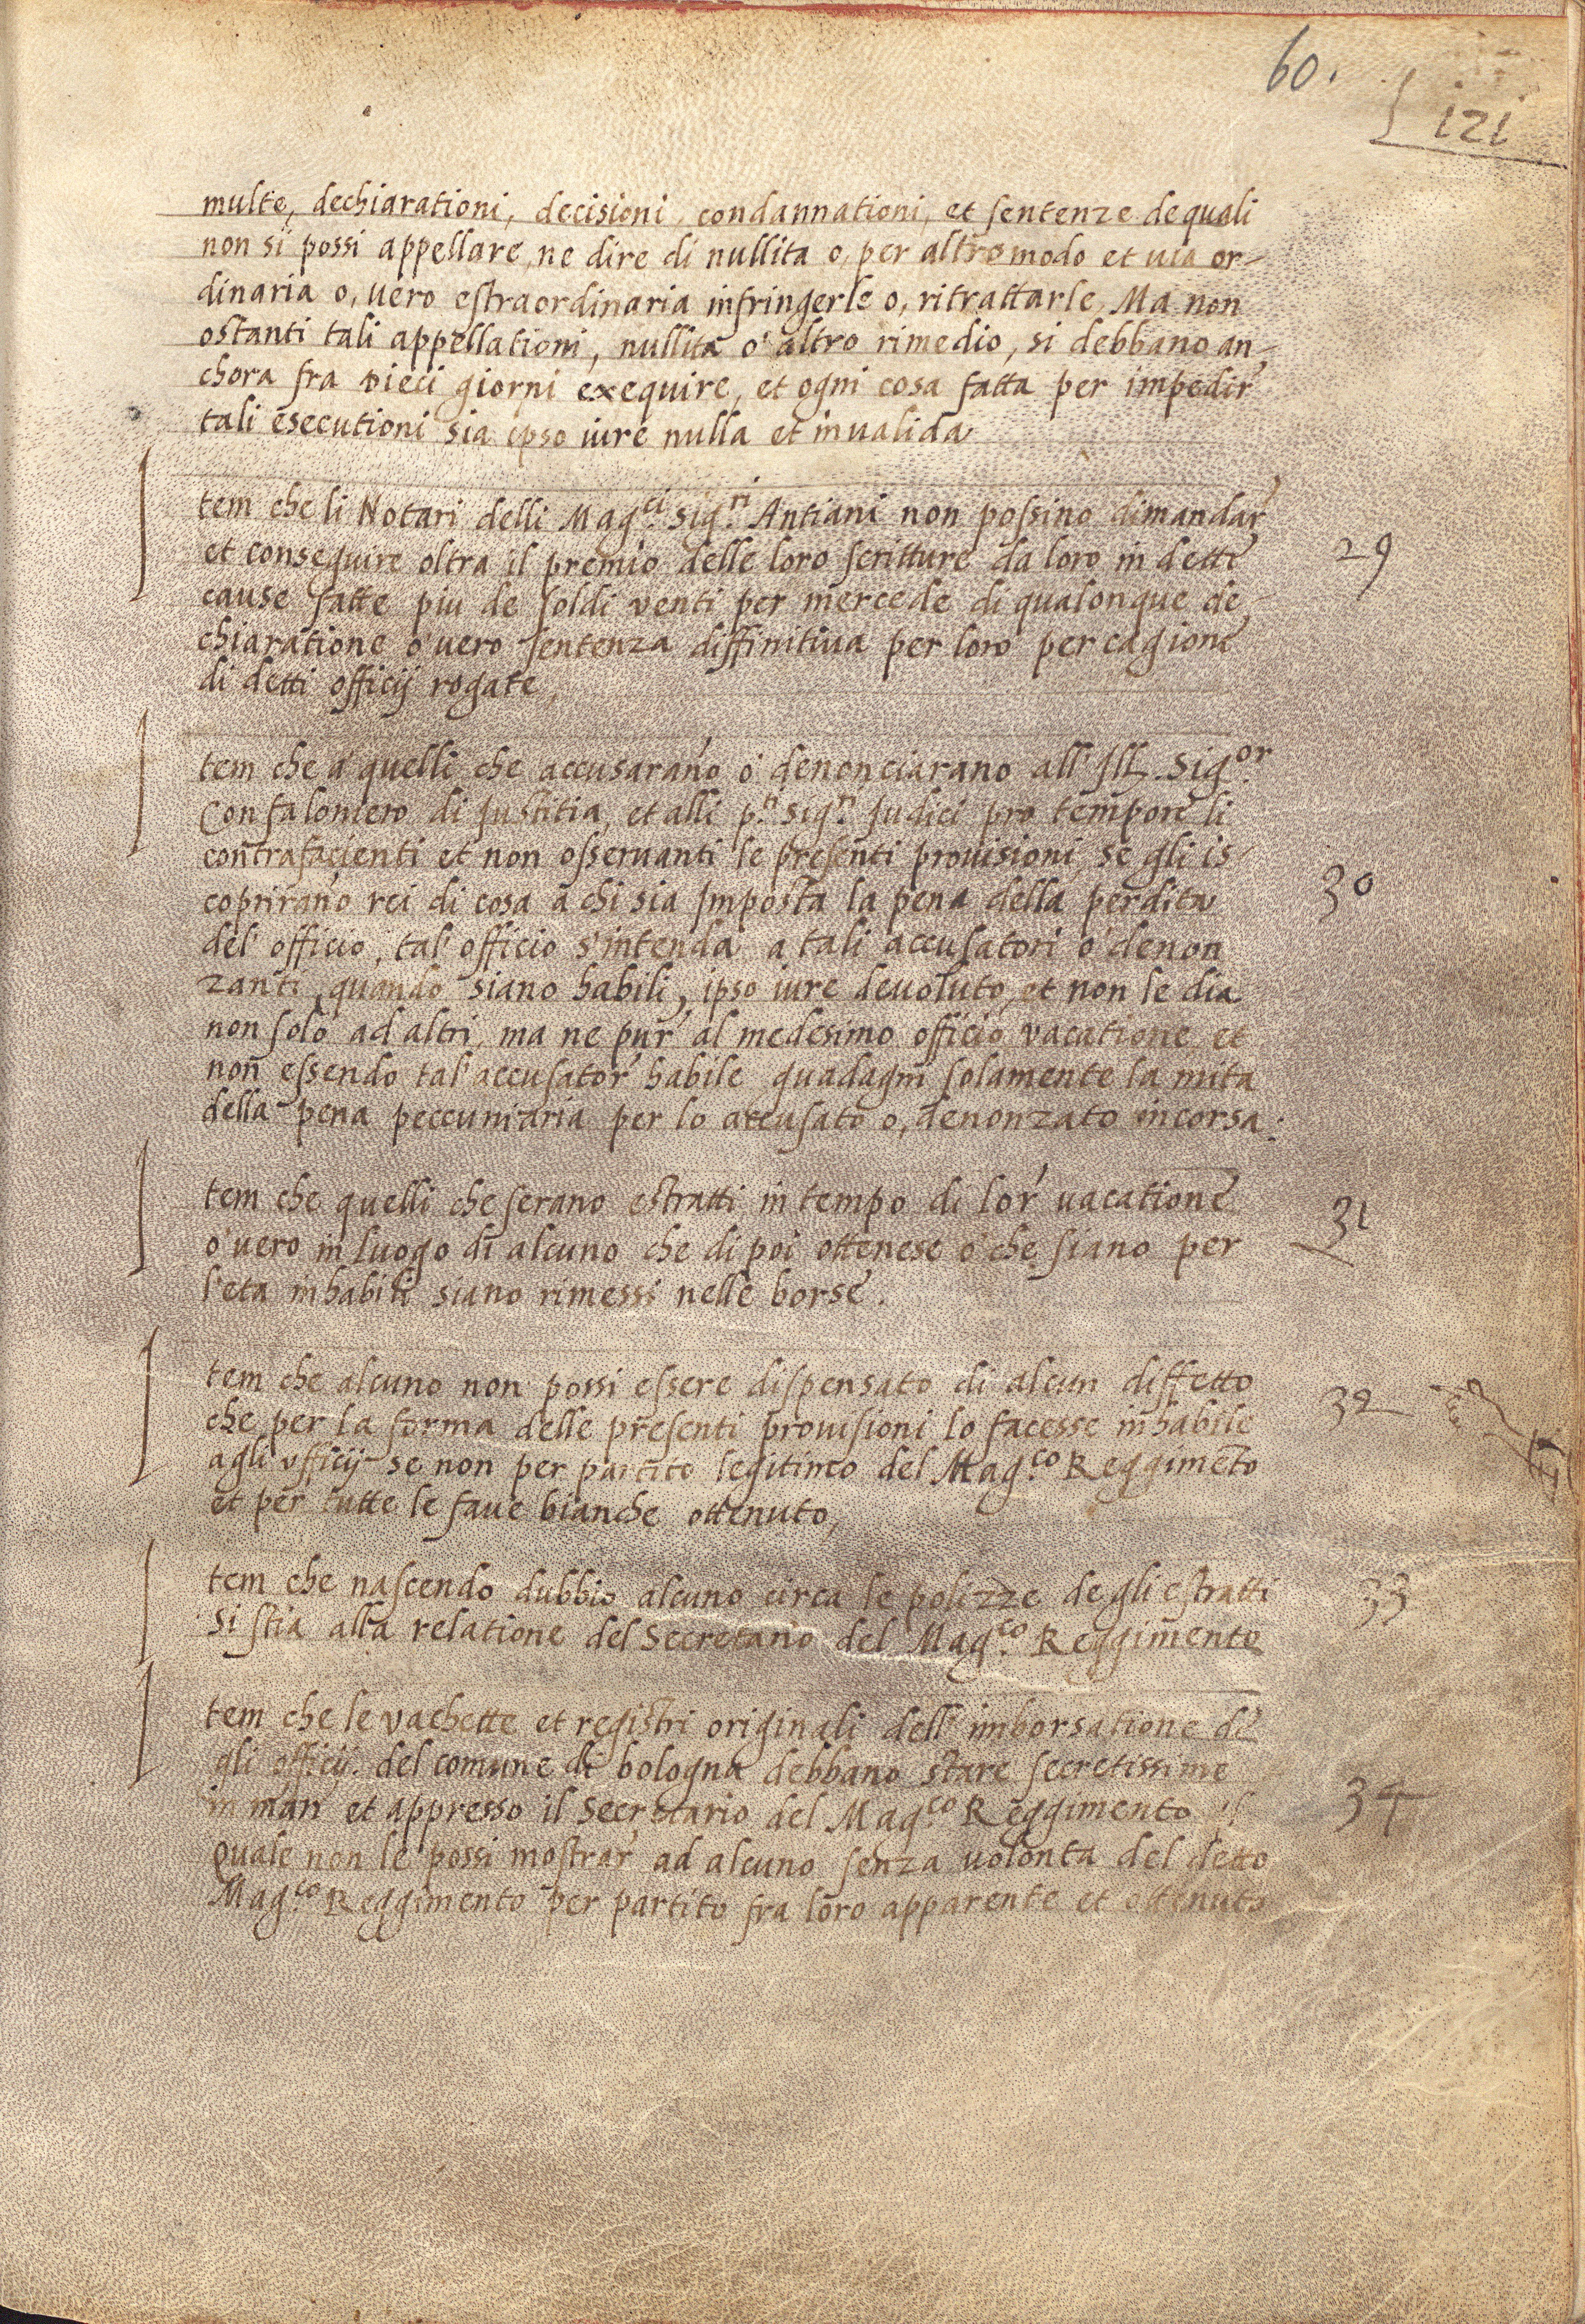 60.
121
multe, dechiarationi, decisioni, condannationi, et sentenze de quali
non si possi appellare, ne dire di nullita o, per altro modo et uia or-
dinaria o, uero estraordinaria infringerle o, ritrattarle, Ma non
ostanti tali appellationi, nullita o' altro rimedio, si debbano an-
chora fra dieci giorni exequire, et ogni cosa fatta per impedir'
tali esecutioni sia ipso iure nulla et inualida
Item che li Notari delli Mag.ci Sig.ri Antiani non possino dimandar'
et conseguire oltra il premio delle loro scritture da loro in dette
29
cause fatte piu de soldi venti per mercede di qualonque de-
chiaratione o' uero sentenza diffinitiua per loro per cagione
di detti officij rogate,
Item che a' quelli che accusarano o' denonciarano all' Ill. Sig.or
Confaloniero di Justitia, et alli p.ti Sig.ri Judici pro tempore li
contrafacienti et non osseruanti le presenti prouisioni, se gli is-
coprirano rei di cosa a chi sia Imposta la pena della perdita
30
del' officio, tal' officio s'intenda a tali accusatori o' denon
zanti, quando siano habili, ipso iure deuoluto, et non le dia
non solo ad altri, ma ne pur' al medesimo officio vacatione, et
non essendo tal' accusator' habile guadagni solamente la mita
della pena peccuniaria per lo accusato o, denonzato incorsa:
Item che quelli che serano estratti in tempo di lor' uacatione
31
o' uero in luogo di alcuno che di poi ottenese o' che siano per
l'eta inhabili siano rimessi nelle borse.
Item che alcuno non possi essere dispensato di alcun diffetto
32
che per la forma delle presenti prouisioni lo facesse inhabile
agli vfficij se non per partito legitimo del Mag.co Reggimēto
et per tutte le faue bianche ottenuto,
Item che nascendo dubbio alcuno circa le polizze degli estratti
33
si stia alla relatione del Secretario del Mag.co Reggimento
Item che le vachette et registri originali dell' imborsatione di
gli officij del comune di bologna debbano stare secretissime
in man' et appresso il Secretario del Mag.co Reggimento il
34
quale non le possi mostrar' ad alcuno senza uolonta del detto
Mag.co Reggimento per partito fra loro apparente et ottenuto